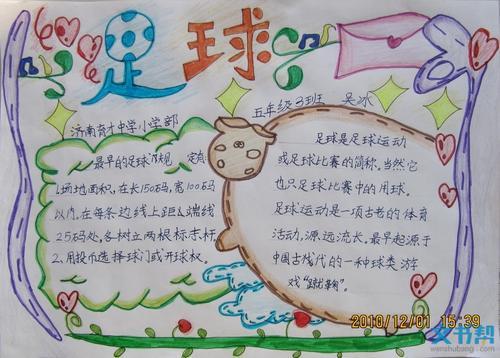 足球
济南育才中学小学部
五年级3班 吴冰
最早的足球规 定有:
1.场地面积,在长150码,宽100码
以内,在每条边线上距底端线
25码处,各树立两根标志杆
2.用投币选择球门或开球权。
足球是足球运动
或足球比赛的简称。当然它
也只足球比赛中的用球。
足球运动是一项古老的体育
活动,源远流长,最早起源于
中国古代的一种球类游
戏“蹴鞠”。
2018/12/01 15:39
文书帮
wenshubang.com